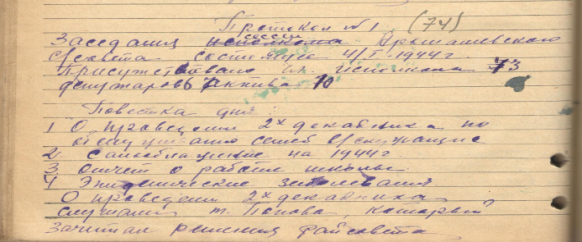 Протокол №1. (74)
Заседания исполкома сессии
с/совета состоялось 4/I 1944г.
Присутствовало чл. Исполкома 73
депутатов 6 Актива 10
Повестка дня
1 О проведении 2х декадника по
семей в/служащие
2. на 1944г
3. отчет о работе школы.
4 Эпидемические заболевания
О проведении 2х декадника
слушали т. Попова, который
зачитал решения райсовета